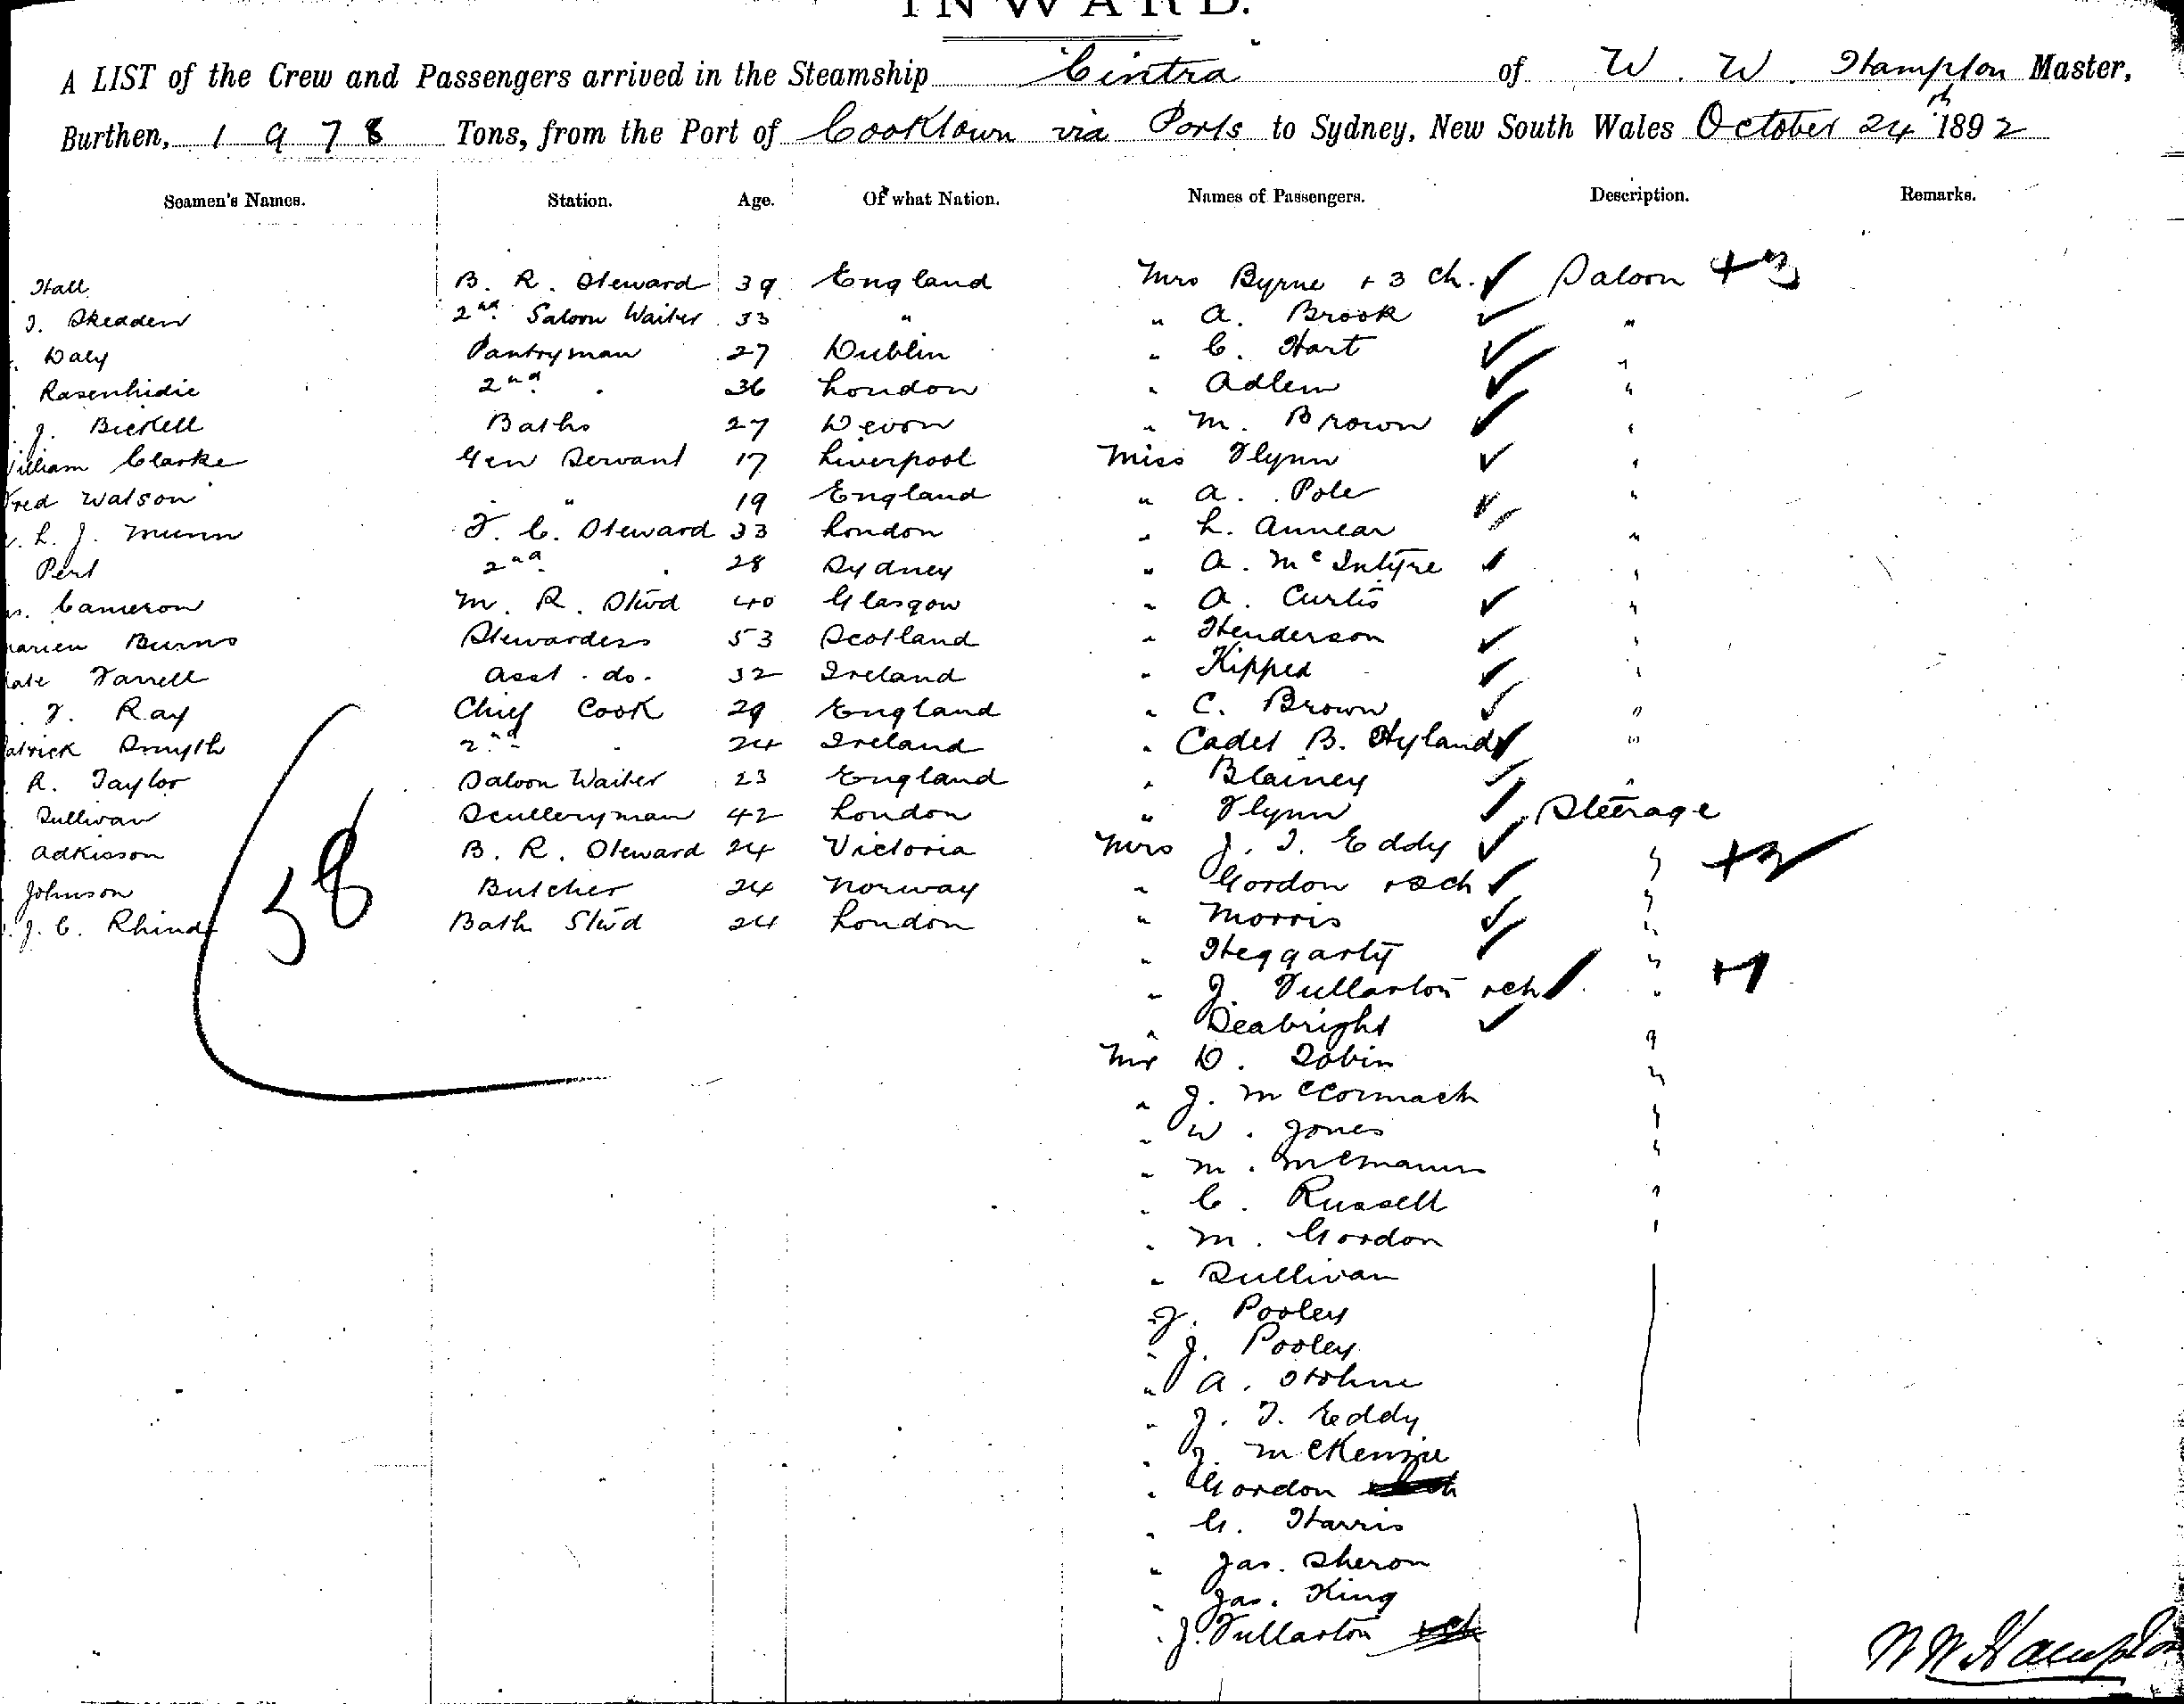 INWARD.
A LIST of the Crew and Passengers arrived in the Steamship "Cintra" of W. W. Hampton Master,
Burthen, 1978 Tons, from the Port of Cooktown via Ports to Sydney, New South Wales October 24th 1892
Seamen's Names. Station. Age. Of what Nation. Names of Passengers. Description. Remarks.
Hall B. R. Steward 39 England Mrs Byrne + 3 ch. ✓ Saloon +3
J. Skedden 2nd Saloon Waiter 33 " " A. Brook ✓ "
Daly Pantryman 27 Dublin " C. Hart ✓ "
2nd " 36 London " Adlem ✓ "
J. Bickell Baths 27 Devon " M. Brown ✓ "
William Clarke Gen Servant 17 Liverpool Miss Flynn ✓ "
Fred Watson " 19 England " A. Pole ✓ "
L. J. Munn F. C. Steward 33 London " L. Annear ✓ "
Pert 2nd " 28 Sydney " A. McIntyre ✓ "
Cameron M. R. Stwd 40 Glasgow " A. Curtis ✓ "
Burns Stewardess 53 Scotland " Henderson ✓ "
Kate Farrell Asst. do. 32 Ireland " Kipped ✓ "
F. Ray Chief Cook 29 England " C. Brown ✓ "
Patrick Smyth 2nd " 24 Ireland " Cadet B. Hyland ✓ "
R. Taylor Saloon Waiter 23 England " Blainey ✓ "
Sullivan Sculleryman 42 London " Flynn ✓ Steerage
Adkisson B. R. Steward 24 Victoria Mrs J. T. Eddy ✓ "
Johnson Butcher 24 Norway " Gordon ✓ "
J. C. Rhind Bath Stwd 24 London " Morris ✓ "
58
" Heggarty ✓ "
" J. Fullarton + ch ✓ " +1
" Seabright ✓ "
Mr D. Tobin "
" J. McCormack "
" W. Jones "
" M. McManus "
" C. Russell "
" M. Gordon "
" Sullivan
" J. Pooley
" J. Pooley
" A.
" J. T. Eddy
" J. McKenzie
" Gordon
" G. Harris
" Jas. Sheron
" Jas. King
" J. Fullarton
W W Hampton